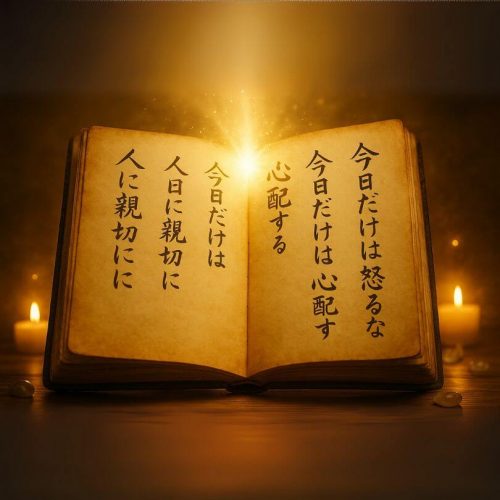 今日だけは怒るな
今日だけは心配す
心配する
今日だけは
人日に親切に
人に親切にに